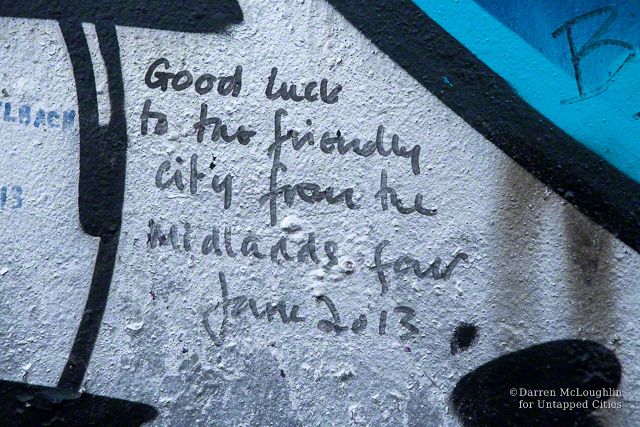 Good luck
to the friendly
city from the
Midlands four
June 2013
13
B
©Darren McLoughlin
for Untapped Cities